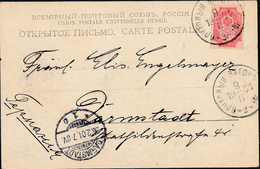 ВСЕМІРНЫЙ ПОЧТОВЫЙ СОЮЗЪ. РОССІЯ.
UNION POSTALE UNIVERSELLE RUSSIE.
ОТКРЫТОЕ ПИСЬМО. CARTE POSTALE
Fräul. Elis. Engelmayer
Darmstadt
Mathildenstraße
Германія
ПОЧТОВЫЙ ВАГОНЪ
DARMSTADT